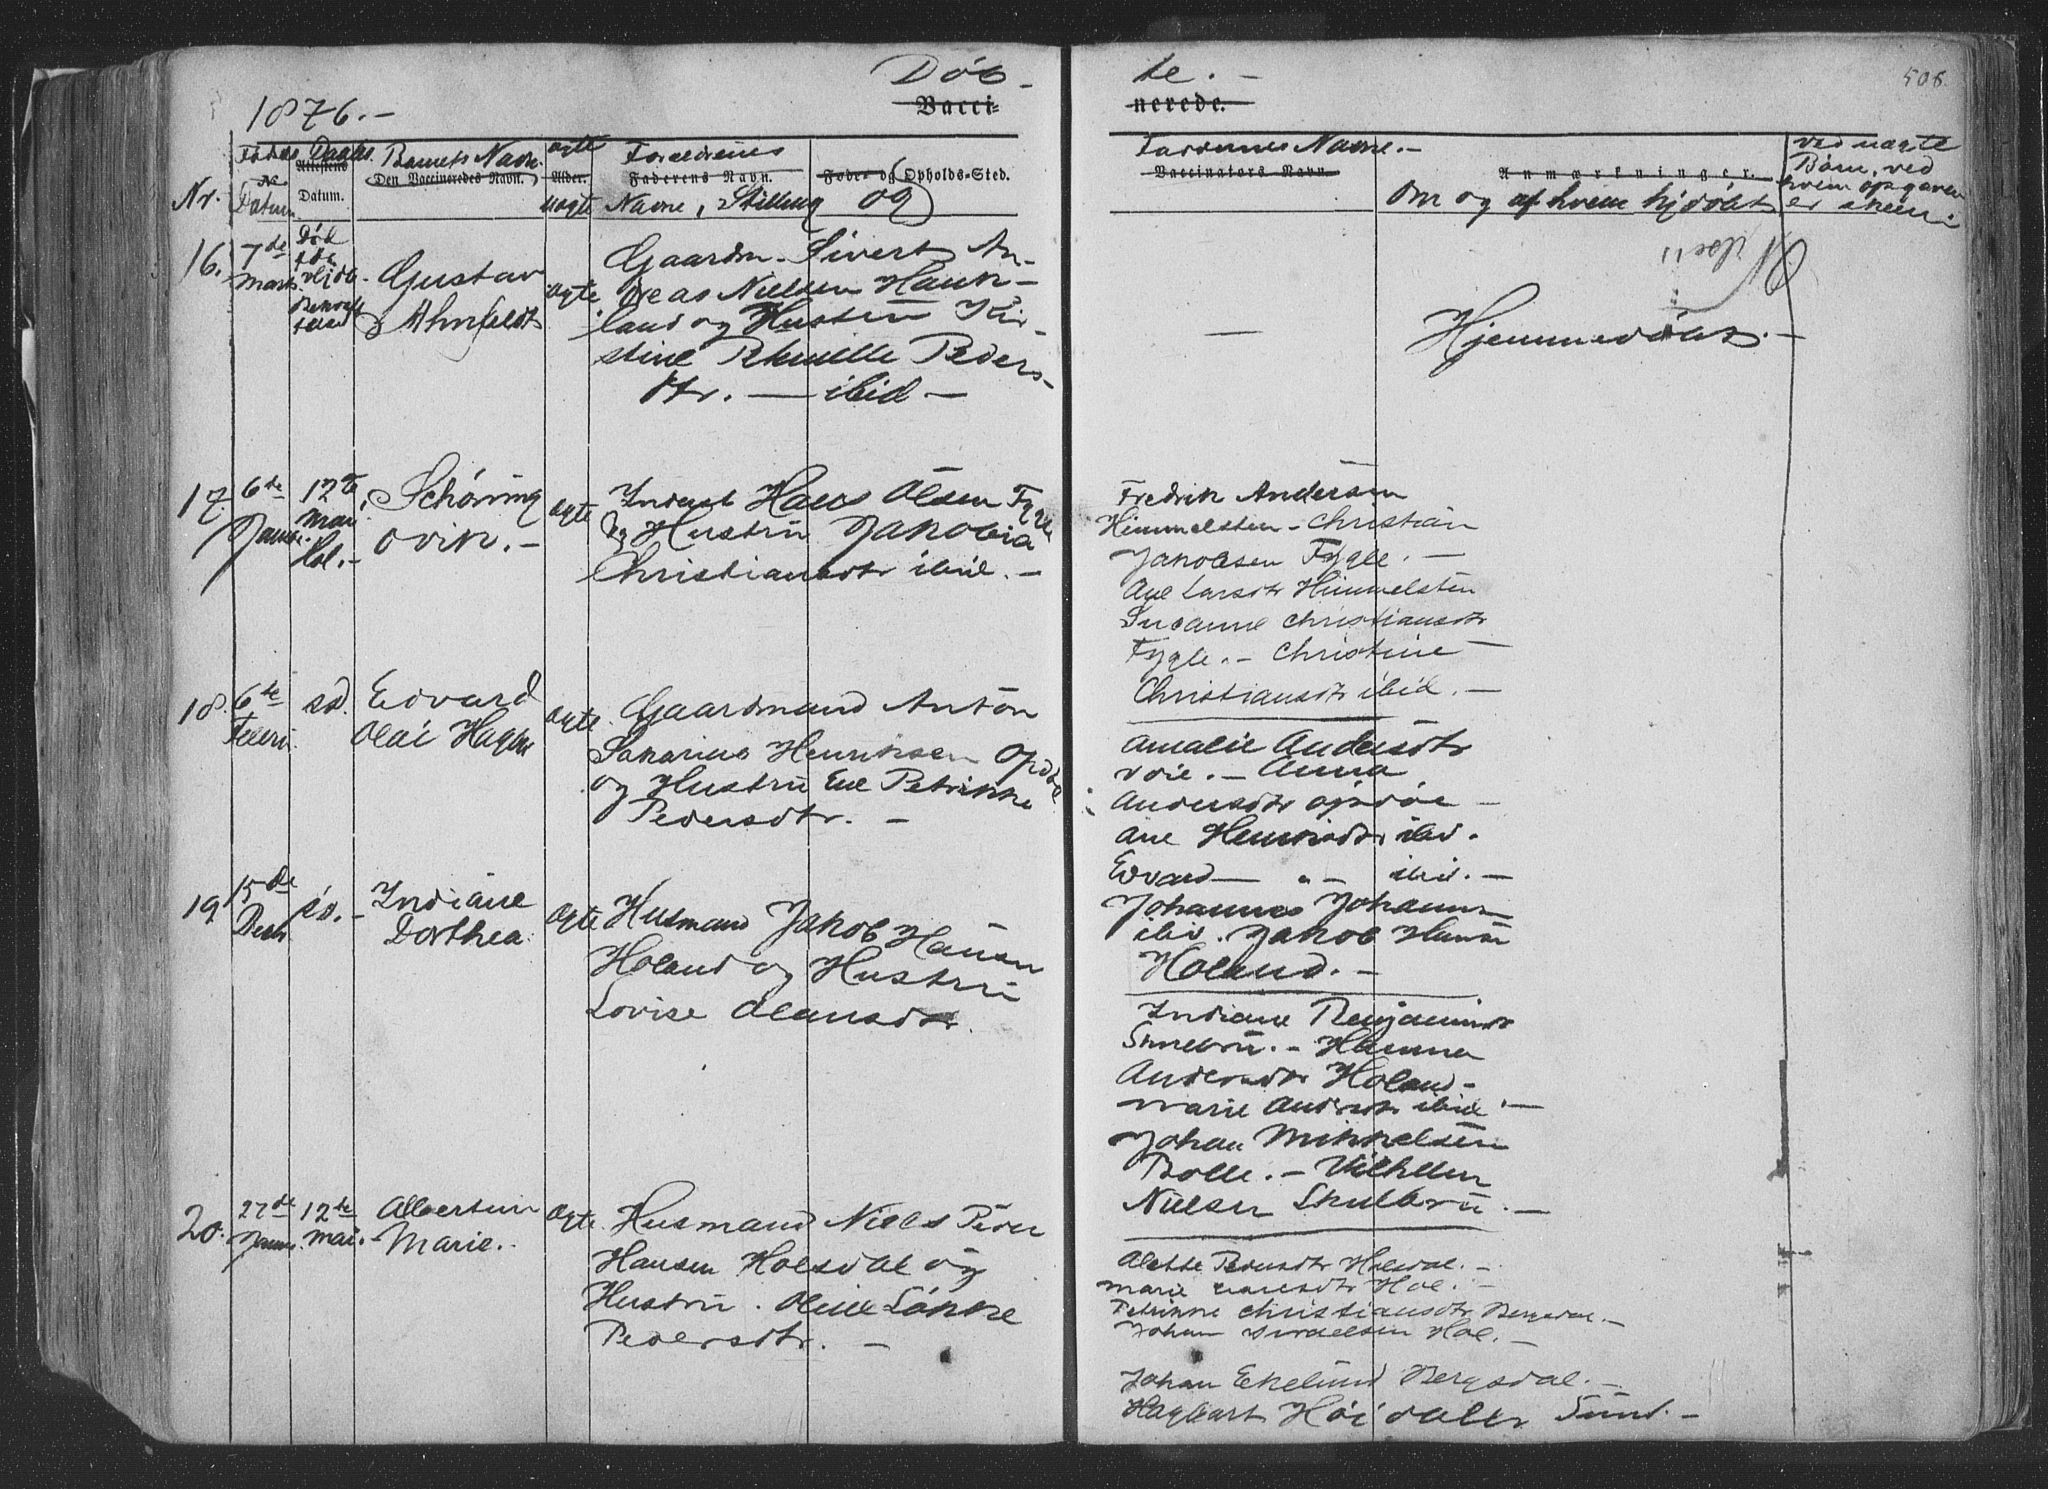 1876.-
Døb-
Vacci-
te.-
nerede.
508.
Nr.
Fødsels
Datum
Daabs
Attestens
Datum.
Barnets Navn.
Den Vaccineredes Navn.
ægte
Alder.
uægte
Forældrenes
Faderens Navn.
Navne, Stilling
Føde- og Opholds-Sted.
og
Faddernes Navne.-
Vaccinators Navn.
Anmærkninger.
Om og af hvem hjdøbt
ved uægte
Børn, ved
hvem opgaven
er skeen
16.
7de
Marts
Død
Hjdb.
Gustav
Ahnfeldt
ægte
Gaardm. Sivert An-
dreas Nielsen Hauk-
land og Hustru Kir-
stine Pernille Peders-
dtr. — ibid —
—
Hjemmedøbt.-
17.
6te
Janr.
12te
Mai
Hol.-
Schøning
Ovik.-
ægte
Inderst Hans Olsen Fygle
og Hustru Jakobia
Christiansdtr ibid.-
Fredrik Andersen
Himmelsten - Christian
Jakobsen Fygle.-
Ane Larsdtr Himmelsten
Susanne Christiansdtr
Fygle.- Christine
Christiansdtr ibid.-
18.
6te
Febru.
sd.
Edvard
Olai Hagen
ægte.
Gaardmand Anton
Sakarius Henriksen Opdøl
og Hustru Ene Petrikke
Pedersdtr.-
Amalie Andersdtr
Voie.- Anna
Andersdtr Opdøl -
Ane Henriksdtr ibid.
Edvard — " — ibid.-
Johannes Johanns
ibid. Jakob Hansen
Holand.-
19
15de
Decbr
sd.-
Indiane
Dorthea
Ægte
Husmand Jakob Hansen
Holand og Hustru
Lovise Olausdtr.
Indiane Benjaminsdtr
Skuldbru.- Hanna
Andersdtr Holand-
Marie Andersdtr ibid.-
Johan Mikkelsen
Bolle.- Vilhelm
Nielsen Skulbru.-
20.
27de
Janu.
12te
Mai.
Albertine
Marie.
ægte.
Husmand Niels Peder
Hansen Holsdal og
Hustru. Oline Søkke
Pedersdtr.-
Alette Pedersdtr Holsdal.-
Marie Larsdtr Hol.-
Petrikke Christiansdtr Bergsdal.-
Johan Israelsen Hol.-
Johan Ekelund Bergsdal.-
Hagbart Høidaler Sund.-